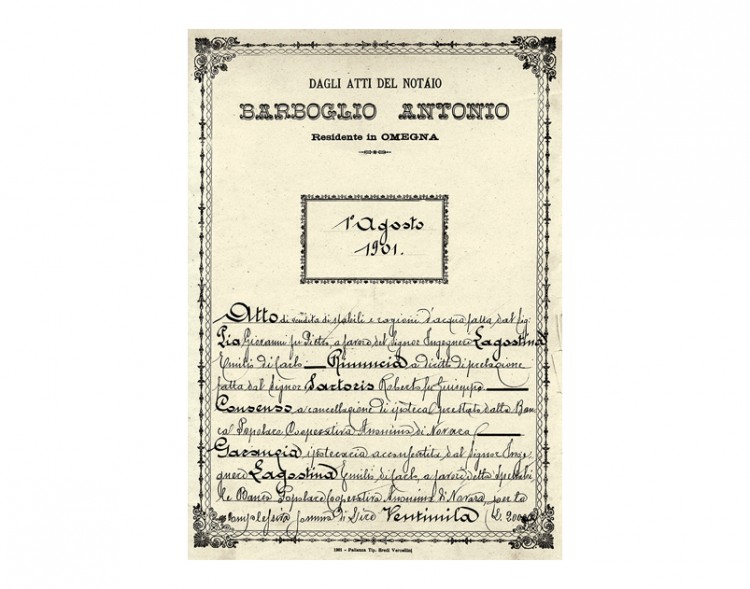 DAGLI ATTI DEL NOTAIO
BARBOGLIO ANTONIO
Residente in OMEGNA
1º Agosto
1901.
Atto di vendita di stabili e ragioni d'acqua fatta dal Sig.
Pio Giovanni fu Pietro, a favore del Signor Ingegnere Lagostina
Emilio di Carlo — Rinuncia a diritti di prelazione
fatta dal Signor Sartoris Roberto fu Giuseppe —
Consenso a cancellazione di ipoteca prestato dalla Ban
ca Popolare Cooperativa Anonima di Novara —
Garanzia ipotecaria acconsentita dal Signor Inge
gnere Lagostina Emilio di Carlo, a favore della spettabi
le Banca Popolare Cooperativa Anonima di Novara, per la
complessiva somma di Lire Ventimila (L. 20000
1901 – Pallanza Tip. Eredi Vercellini